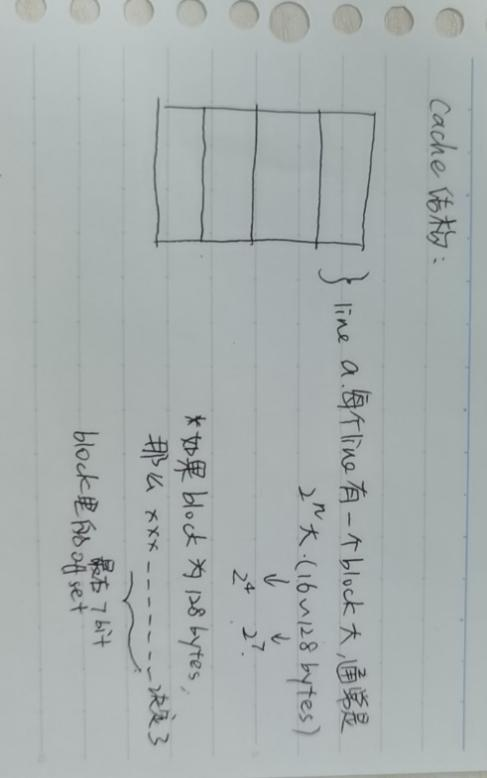 cache 结构:
} line a. 每个line有一个block大,通常是
2^N大.(16~128 bytes)
↓ ↓
2^4 2^7.
*如果 block 为 128 bytes,
那么 xxx-------决定了
最右7bit
block里的offset